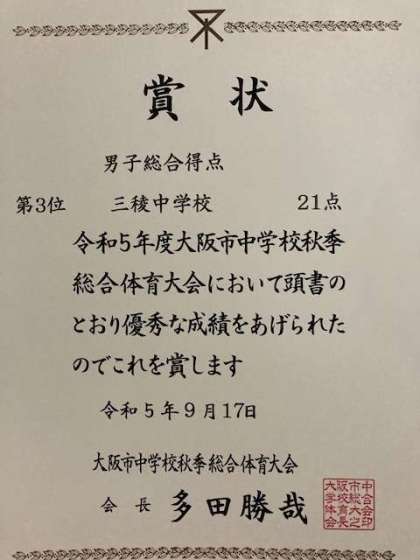 賞状
男子総合得点
第3位 三稜中学校 21点
令和5年度大阪市中学校秋季
総合体育大会において頭書の
とおり優秀な成績をあげられた
のでこれを賞します
令和5年9月17日
大阪市中学校秋季総合体育大会
会長 多田勝哉